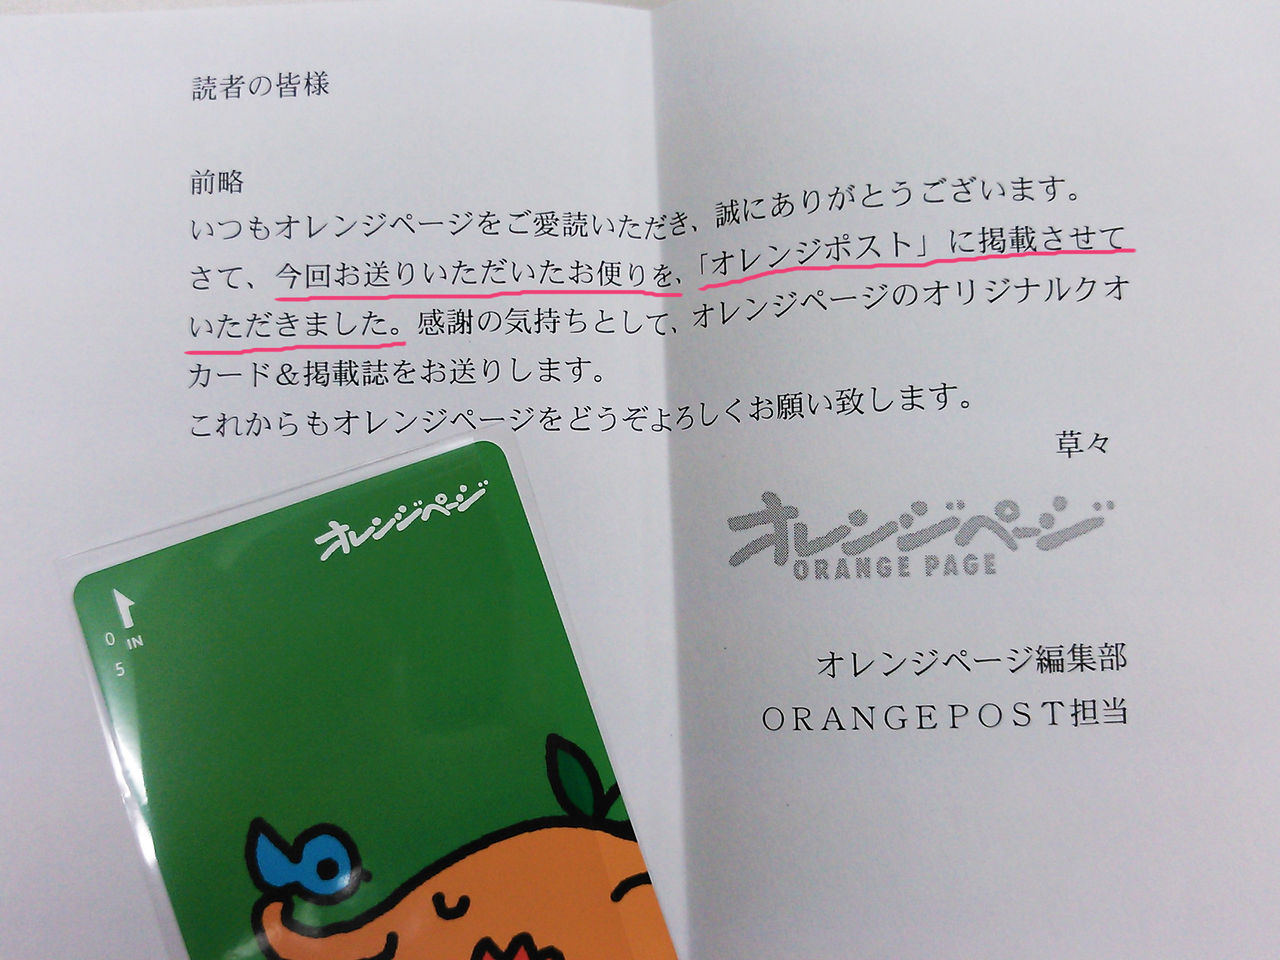 読者の皆様
前略
いつもオレンジページをご愛読いただき、誠にありがとうございます。
さて、今回お送りいただいたお便りを、「オレンジポスト」に掲載させて
いただきました。感謝の気持ちとして、オレンジページのオリジナルクオ
カード＆掲載誌をお送りします。
これからもオレンジページをどうぞよろしくお願い致します。
草々
オレンジページ
ORANGE PAGE
オレンジページ編集部
ＯＲＡＮＧＥＰＯＳＴ担当
オレンジページ
0 IN
5